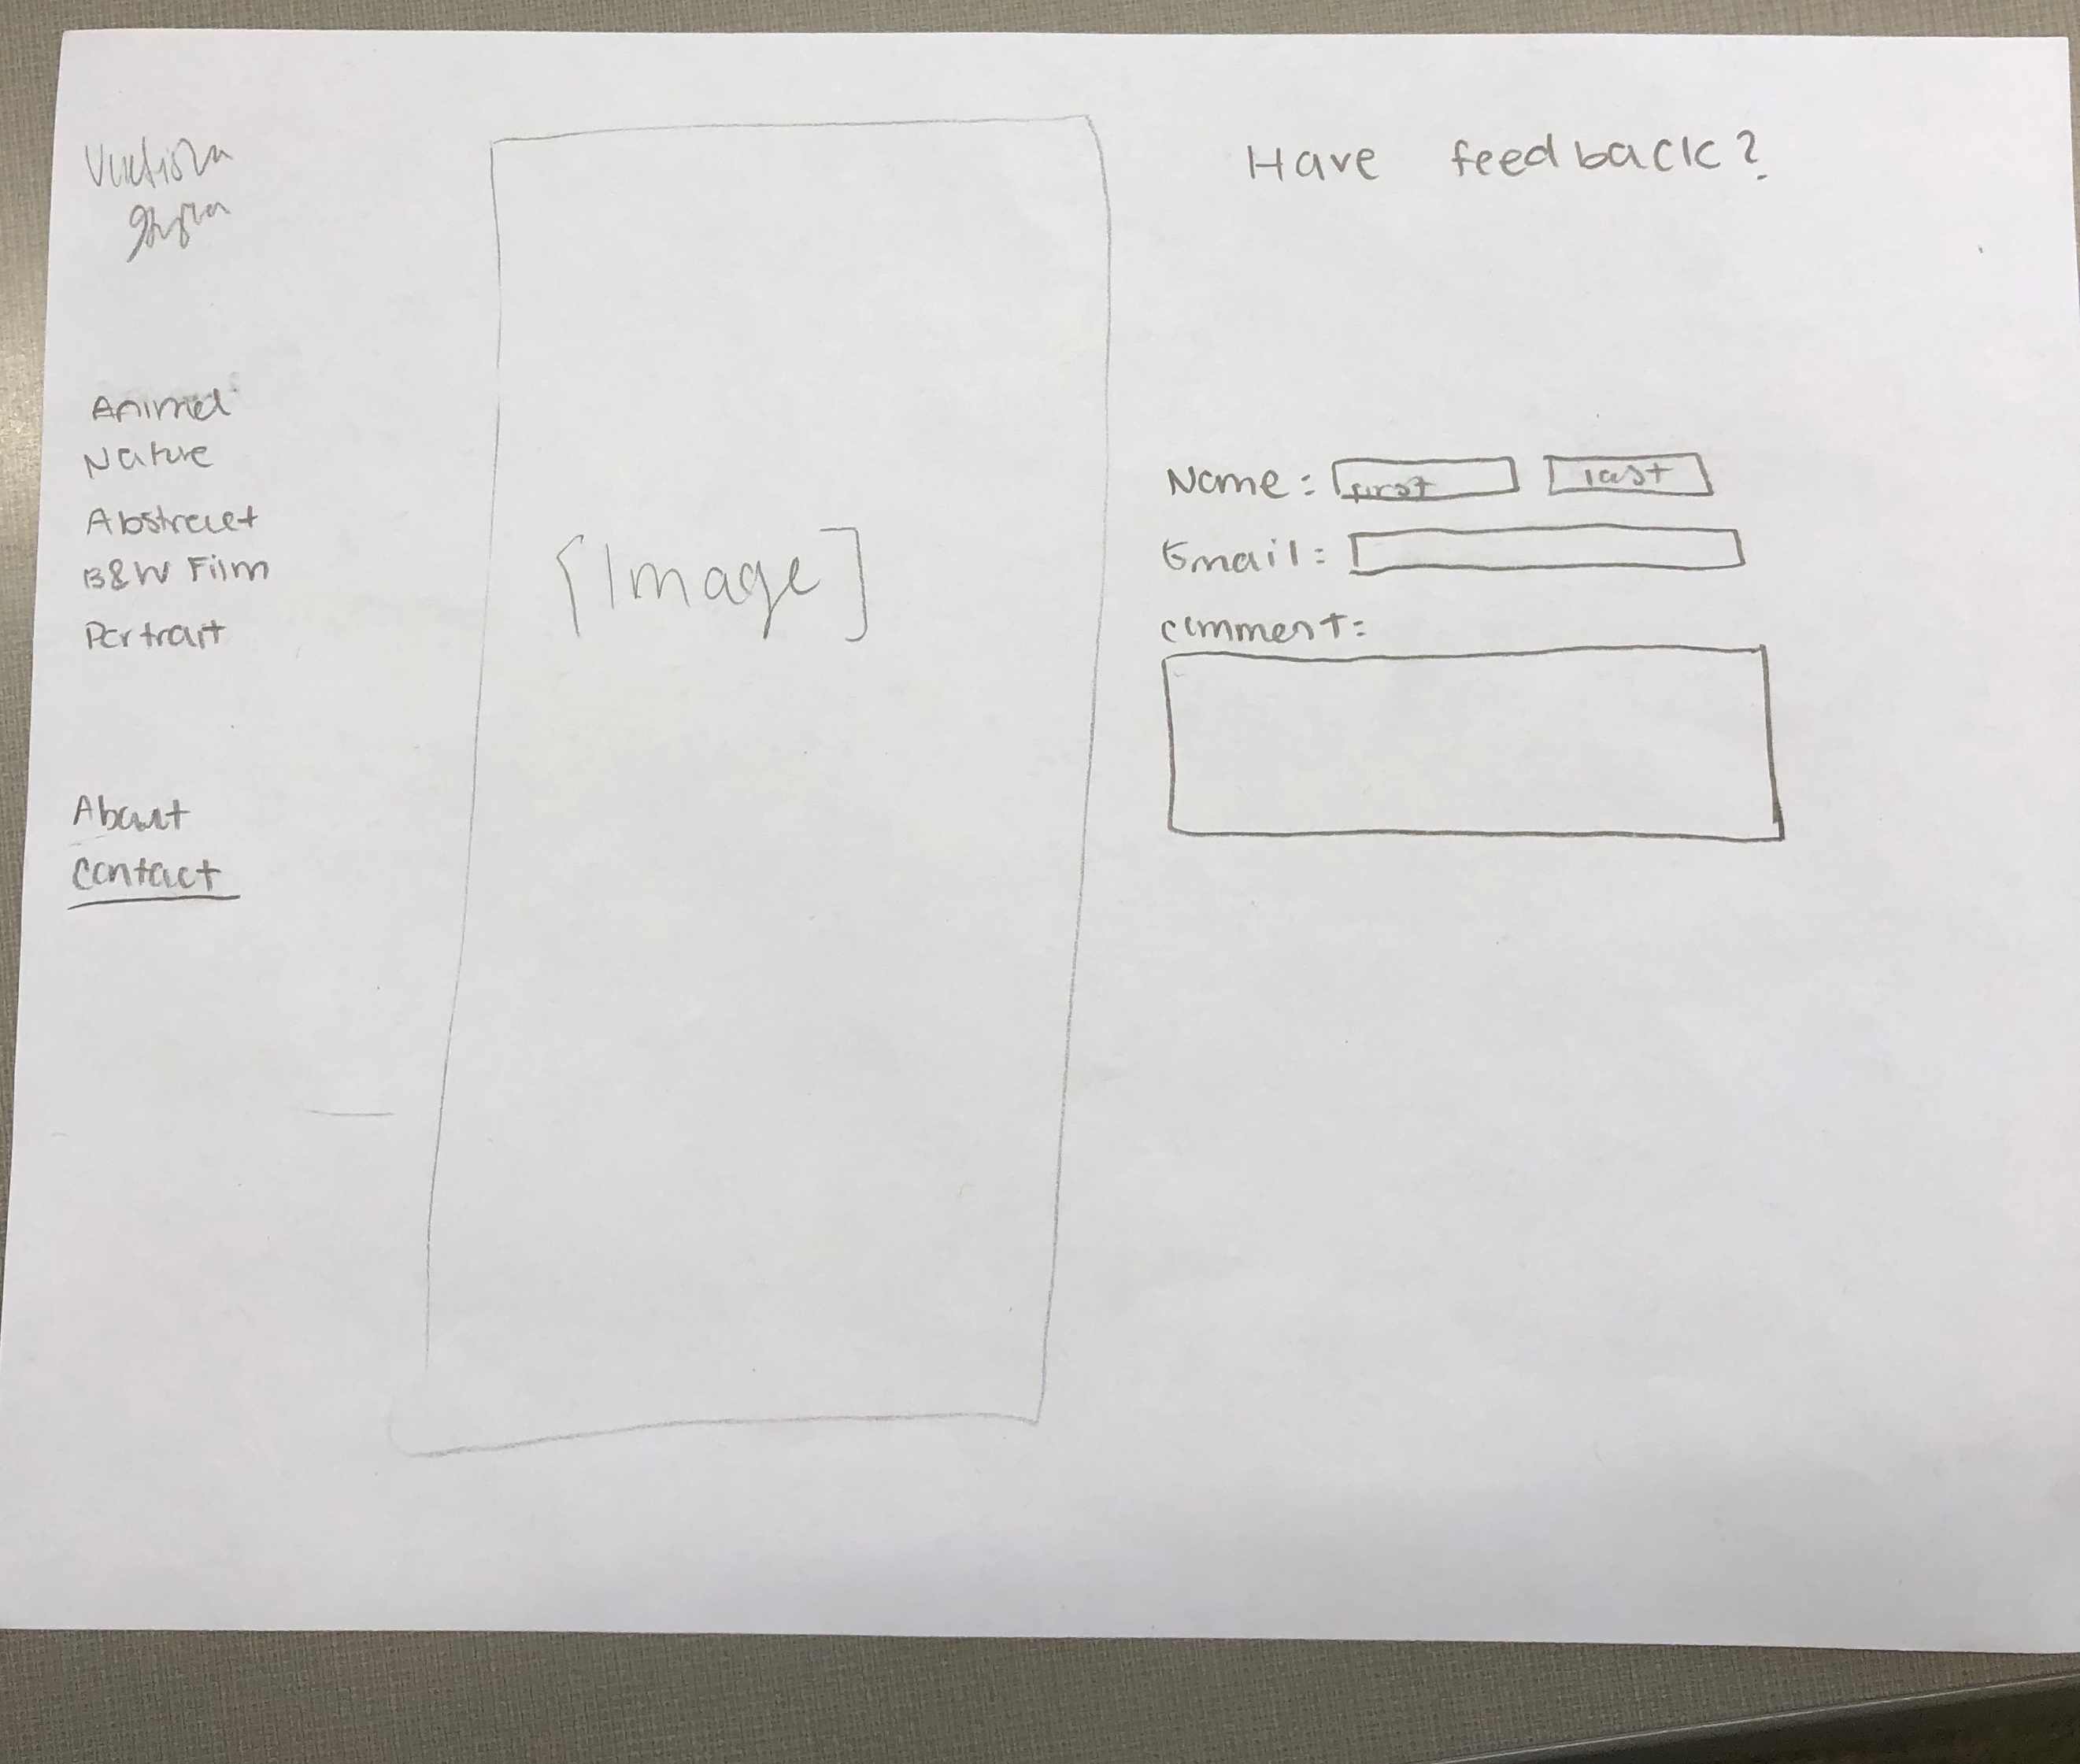 Animal
Nature
Abstract
B&W Film
Portrait
About
Contact
[Image]
Have feedback?
Name: first last
Email:
comment: